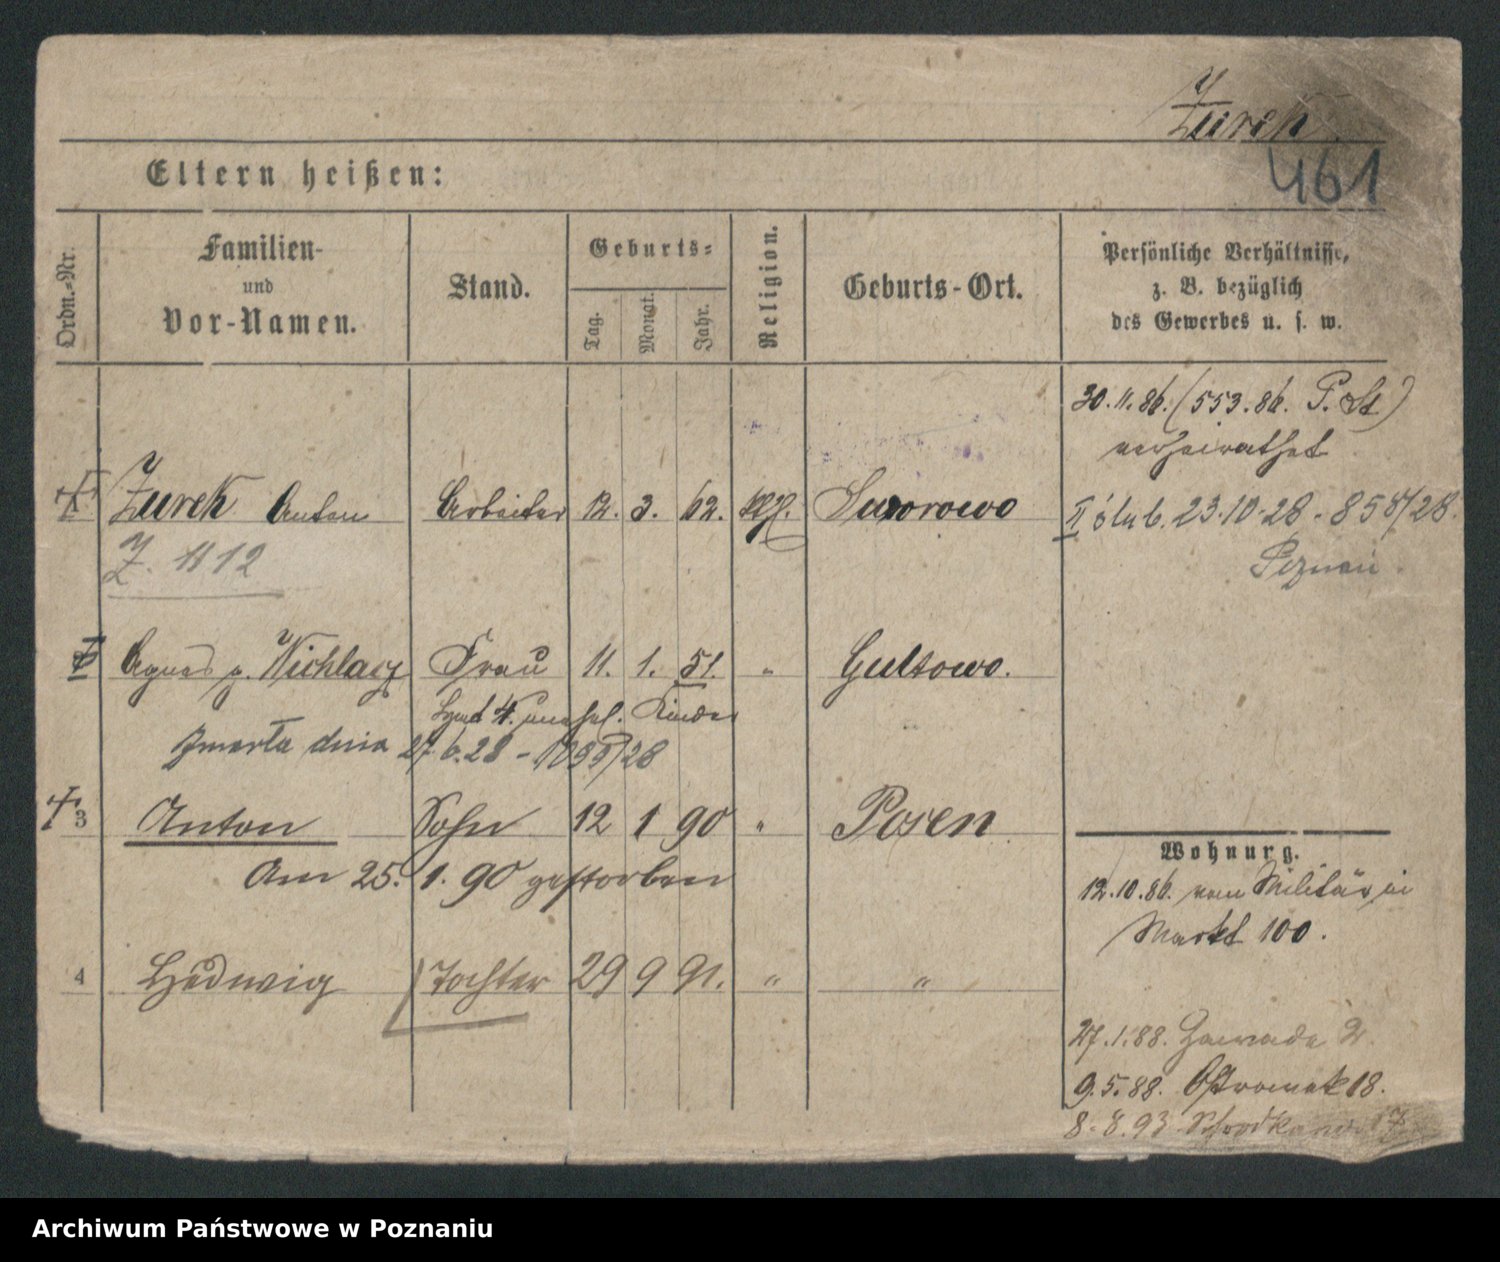 Żurek
461
Eltern heißen:
Ordn.-Nr.
Familien-
und
Vor-Namen.
Stand.
Geburts-
Tag.
Monat.
Jahr.
Religion.
Geburts-Ort.
Persönliche Verhältnisse,
z. B. bezüglich
des Gewerbes u. s. w.
30.11.86. (553.86. P. St)
verheirathet
Żurek Anton Arbeiter 12. 3. 62. kth.
II ślub. 23.10.28 - 858/28.
Poznań
Ż. 1112
Agnes g. Michlacz Frau 11. 1. 51. " Gultowo.
4. unehel. Kinder
zmarła dnia 27.6.28 -
3 Anton Sohn 12 1 90 " Posen
Am 25. 1. 90 gestorben
Wohnung.
12.10.86. vom Militär in
Markt 100.
4 Hedwig Tochter 29 9 91. " "
27.1.88. 2
9.5.88. Ostrowek 18.
8.8.93 Schrodka
Archiwum Państwowe w Poznaniu